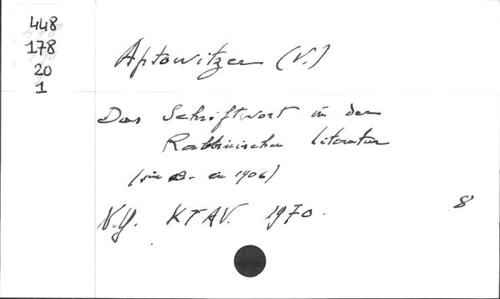 448
178
20
1
Aptowitzer (V.)
Das Schriftwort in der
Rabbinischen Literatur
1906)
N.Y. KTAV. 1970.
8